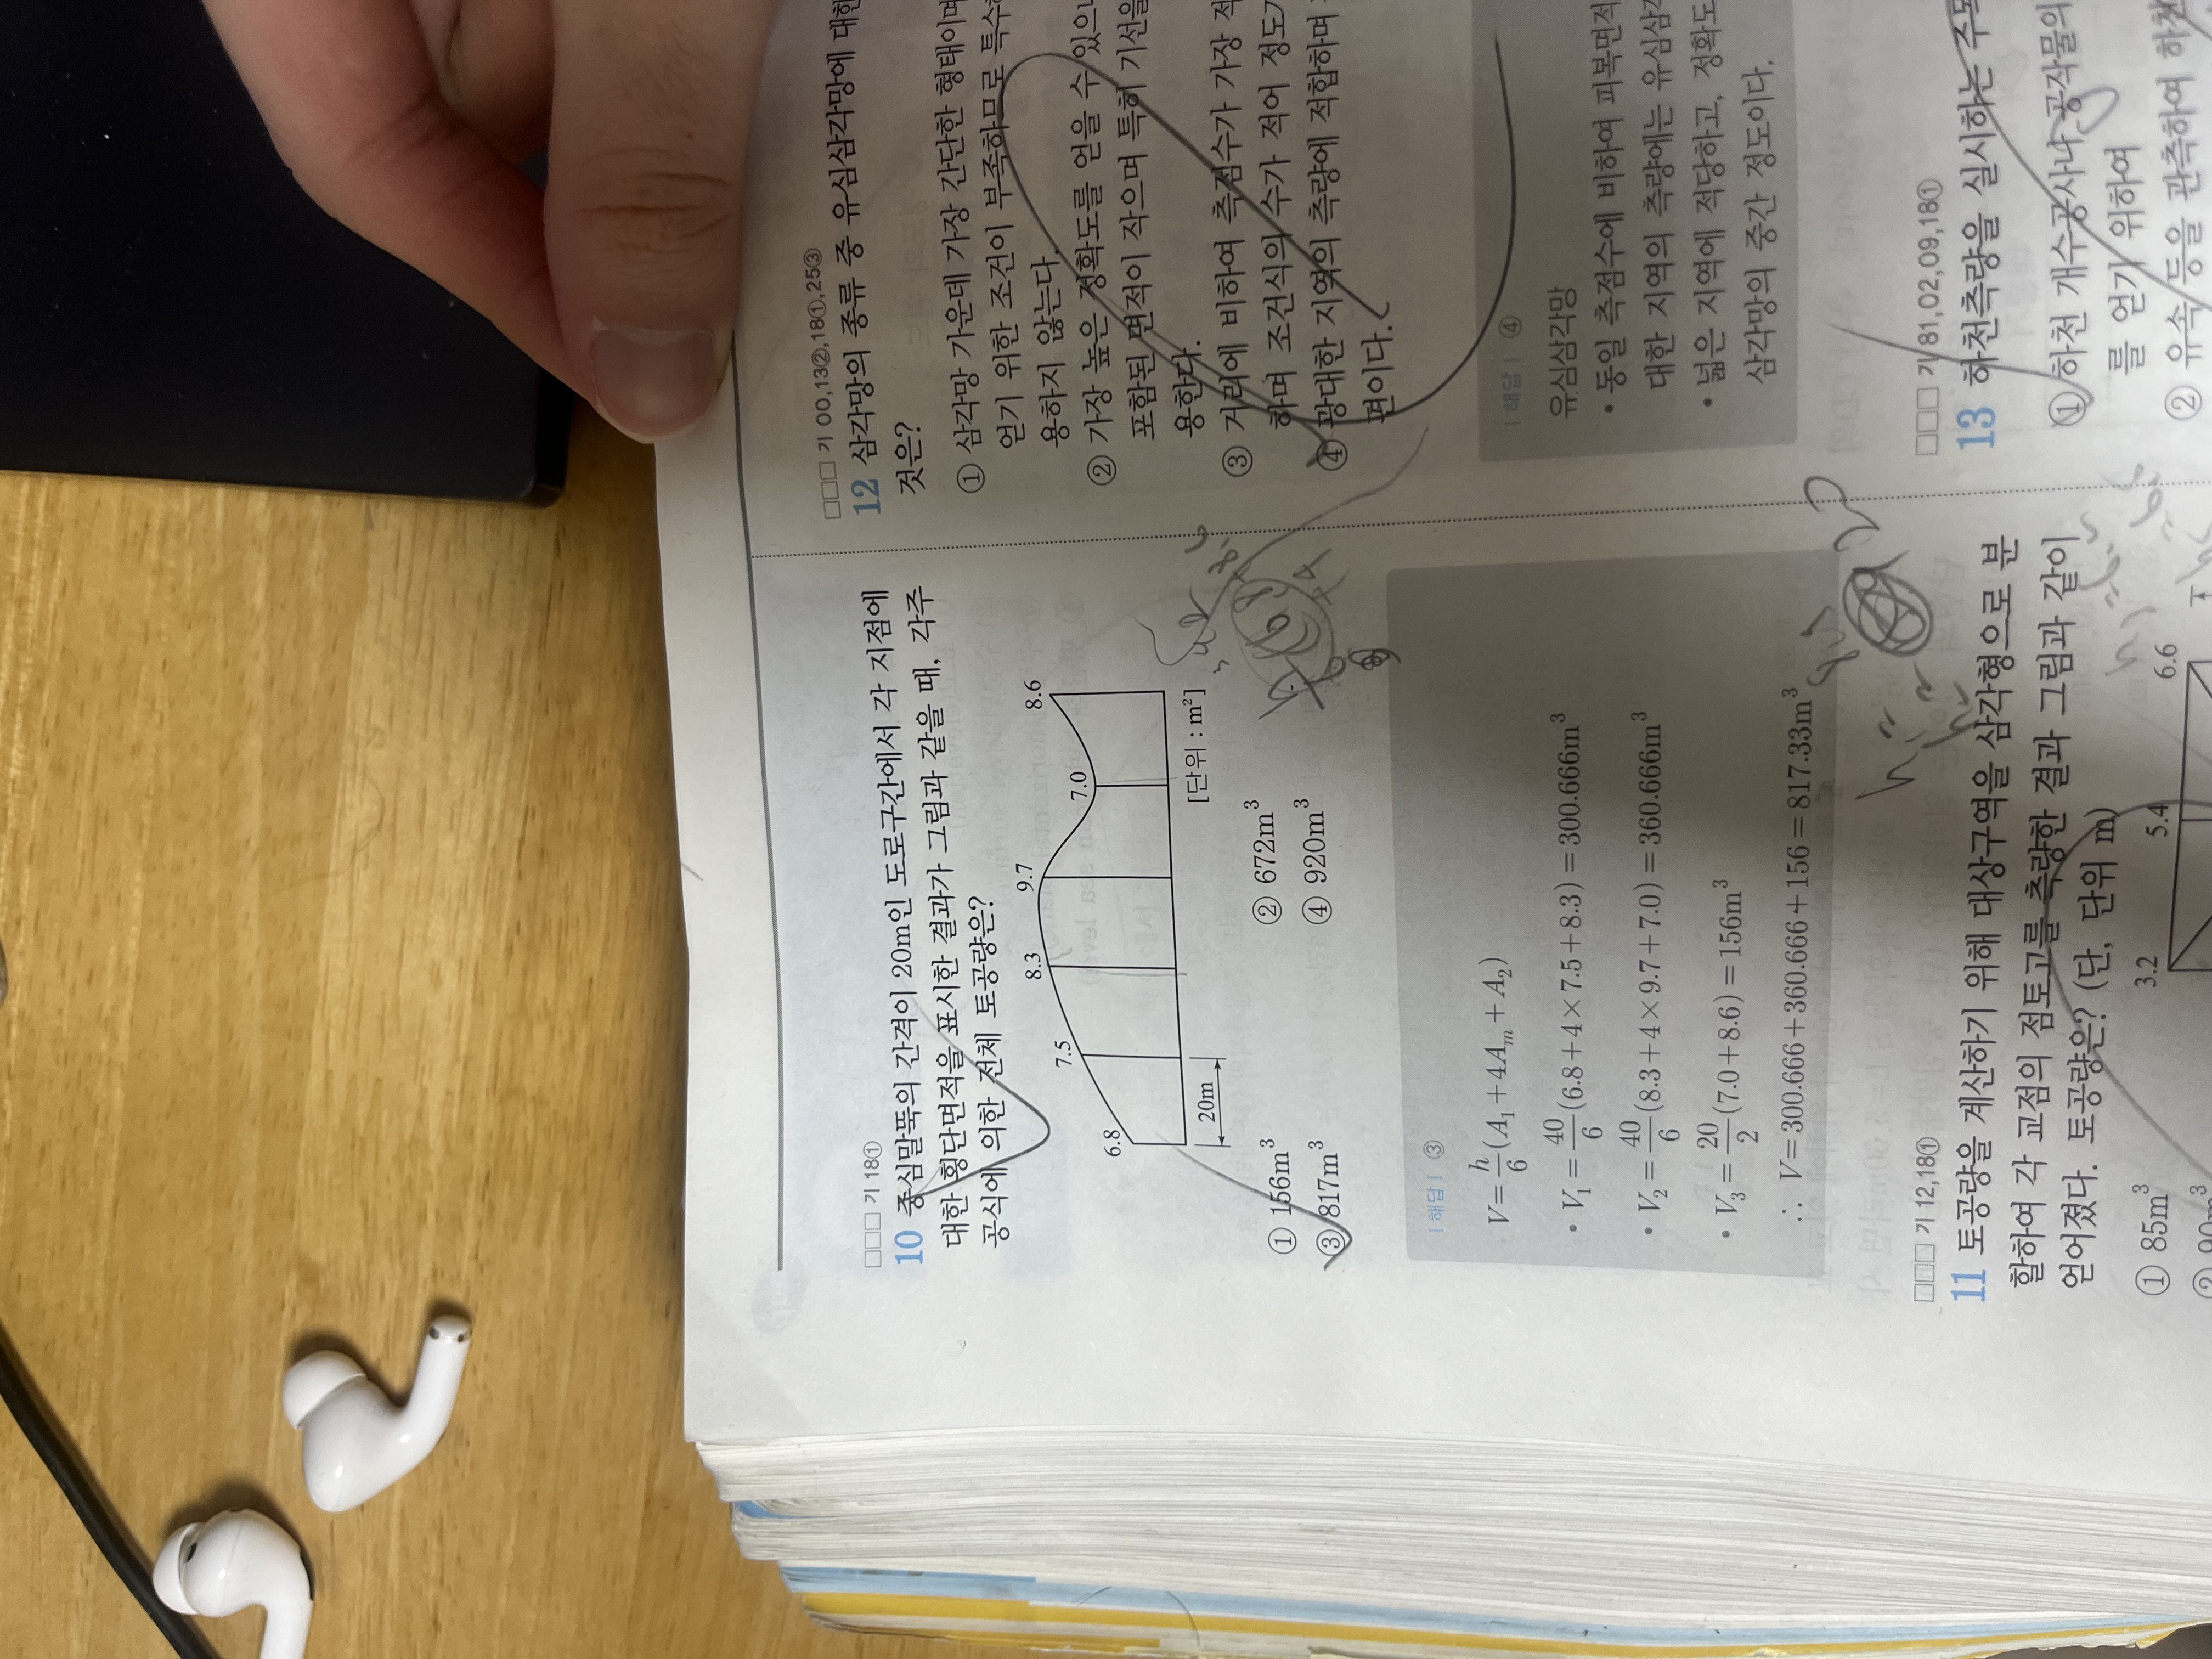 □□□ 기 18①
10 중심말뚝의 간격이 20m인 도로구간에서 각 지점에
대한 횡단면적을 표시한 결과가 그림과 같을 때, 각주
공식에 의한 전체 토공량은?
6.8 7.5 8.3 9.7 7.0 8.6
20m
[단위 : m²]
① 156m³ ② 672m³
③ 817m³ ④ 920m³
| 해답 | ③
V = h/6 (A₁ + 4Aₘ + A₂)
• V₁ = 40/6 (6.8 + 4 × 7.5 + 8.3) = 300.666m³
• V₂ = 40/6 (8.3 + 4 × 9.7 + 7.0) = 360.666m³
• V₃ = 20/2 (7.0 + 8.6) = 156m³
∴ V = 300.666 + 360.666 + 156 = 817.33m³
□□□ 기 12,18①
11 토공량을 계산하기 위해 대상구역을 삼각형으로 분
할하여 각 교점의 점토고를 측량한 결과 그림과 같이
얻어졌다. 토공량은? (단, 단위 m)
① 85m³
90m³
3.2 5.4 6.6
□□□ 기 00,13②,18①,25③
12 삼각망의 종류 중 유심삼각망에 대한
것은?
① 삼각망 가운데 가장 간단한 형태이며
얻기 위한 조건이 부족하므로 특수
용하지 않는다.
② 가장 높은 정확도를 얻을 수 있으나
포함된 면적이 작으며 특히 기선을
용한다.
③ 거리에 비하여 측점수가 가장 적
하며 조건식의 수가 적어 정도가
④ 광대한 지역의 측량에 적합하며
편이다.
| 해답 | ④
유심삼각망
• 동일 측점수에 비하여 피복면적
대한 지역의 측량에는 유심삼각
• 넓은 지역에 적당하고, 정확도
삼각망의 중간 정도이다.
□□□ 기 81,02,09,18①
13 하천측량을 실시하는 주목
① 하천 개수공사나 공작물의
를 얻기 위하여
② 유속 등을 관측하여 하천